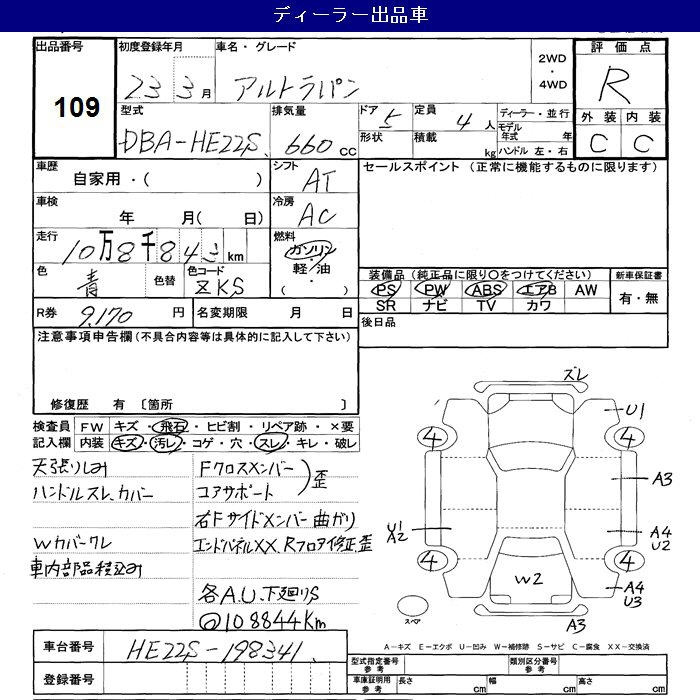 ディーラー出品車
出品番号
109
初度登録年月
23 3月
車名・グレード
アルトラパン
2WD
・
4WD
評価点
R
外装 内装
C C
型式
DBA-HE22S
排気量
660 cc
ドア 5
形状
定員 4人
積載 kg
ディーラー・並行
モデル年式 年
ハンドル 左・右
車歴
自家用・( )
シフト
AT
セールスポイント (正常に機能するものに限ります)
車検
年 月( 日)
冷房
AC
走行
10万8千843km
燃料
ガソリン
・
軽油
( ・ )
色
青
色替
色コード
ZKS
装備品 (純正品に限り○をつけてください)
PS PW ABS エアB AW
SR ナビ TV カワ
新車保証書
有・無
R券 9,170円
名変期限 月 日
後日品
注意事項申告欄(不具合内容等は具体的に記入して下さい)
修復歴 有 〔箇所 〕
検査員
記入欄
FW キズ・飛石・ヒビ割・リペア跡・×要
内装 キズ・汚レ・コゲ・穴・スレ・キレ・破レ
天張りしみ
ハンドルスレ、カバー
Wカバークレ
車内部品積込み
Fクロスメンバー
コアサポート
歪
右Fサイドメンバー曲がり
エンドパネルXX、Rフロア修正歪
各A.U、下廻りS
108844Km
ズレ
U1
4 4
A3
U1
A2
A4
U2
4 4
W2
A4
U3
A3
スペア
A−キズ E−エクボ U−凹み W−補修跡 S−サビ C−腐食 XX−交換済
車台番号 HE22S-198341
登録番号
型式指定番号
参考
類別区分番号
参考
車庫証明用
参考
長さ cm 幅 cm 高さ cm